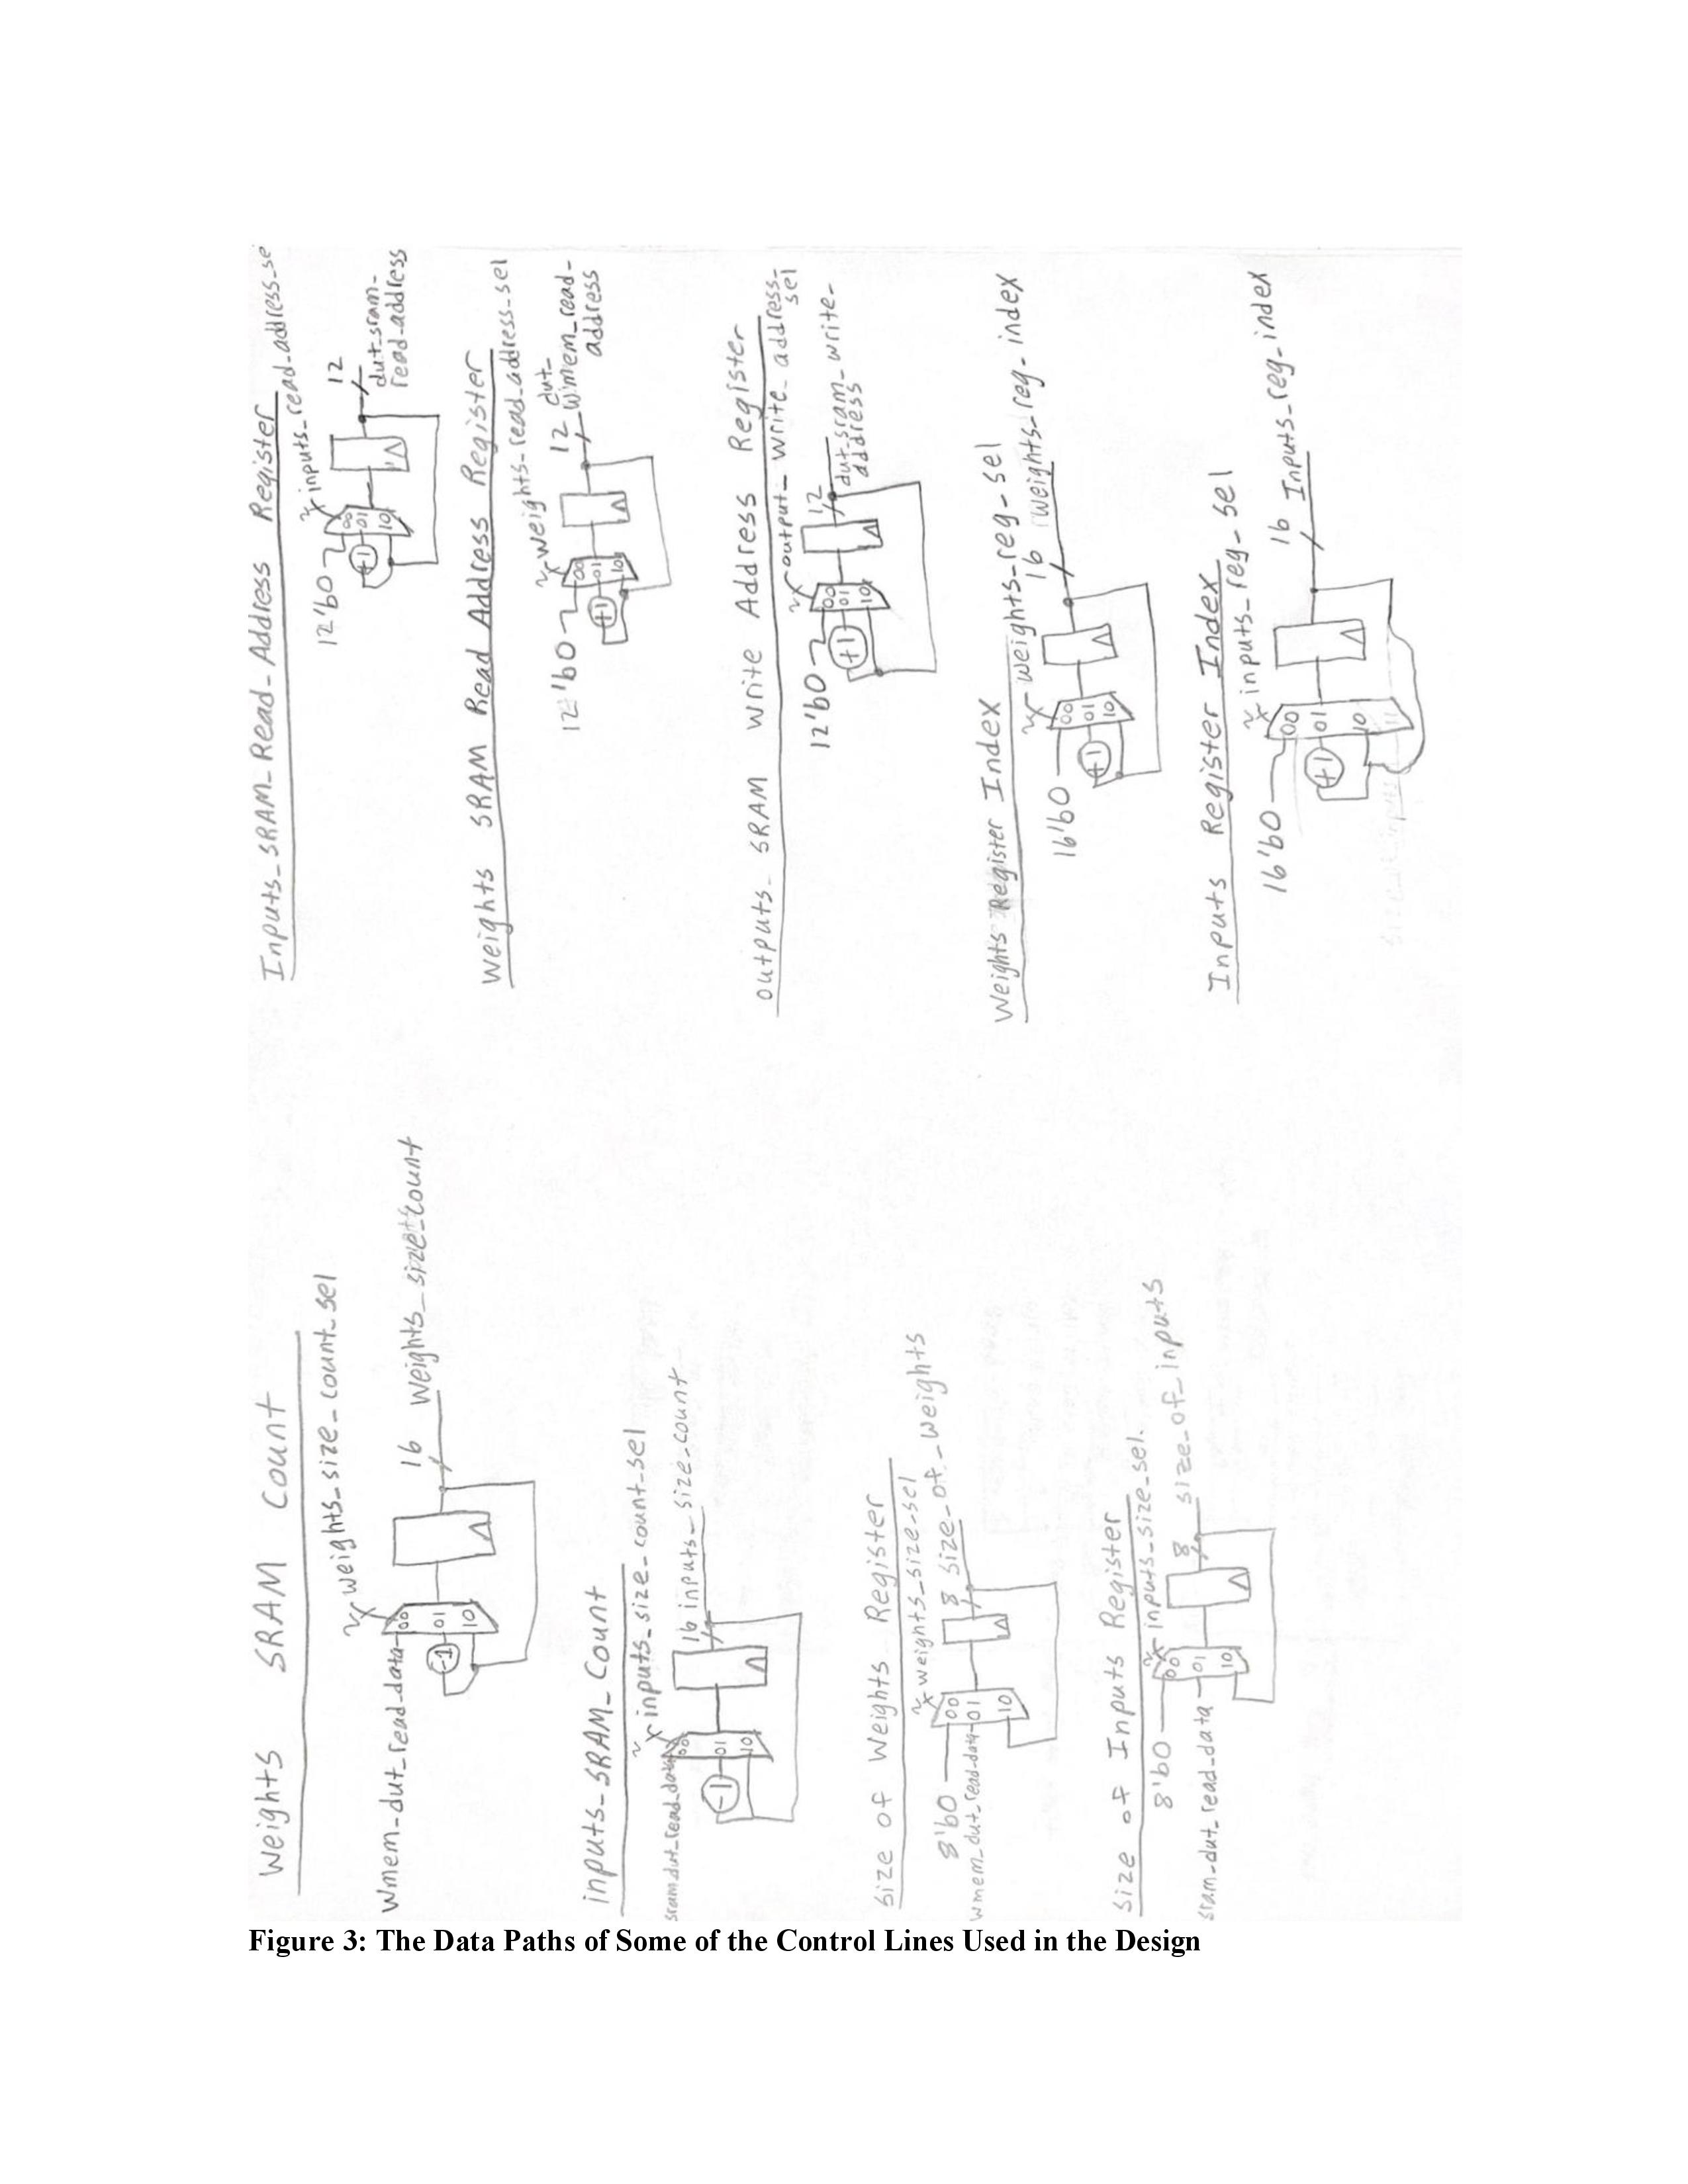 Weights SRAM Count
2 weights_size_count_sel
wmem_dut_read_data
00
01
10
-1
16 weights_size_count
inputs_SRAM_Count
2 inputs_size_count_sel
sram_dut_read_data
00
01
10
-1
16 inputs_size_count
Size of Weights Register
2 weights_size_sel
8'b0
wmem_dut_read_data
00
01
10
8 size_of_weights
Size of Inputs Register
2 inputs_size_sel.
8'b0
sram_dut_read_data
00
01
10
8 size_of_inputs
Inputs_SRAM_Read_Address Register
2 inputs_read_address_se
12'b0
00
01
10
+1
12
dut_sram_
read_address
Weights SRAM Read Address Register
2 weights_read_address_sel
12'b0
00
01
10
+1
12 dut_
wmem_read_
address
Outputs_SRAM Write Address Register
2 output_write_address_
sel
12'b0
00
01
10
+1
12
dut_sram_write_
address
Weights Register Index
2 weights_reg_sel
16'b0
00
01
10
+1
16 weights_reg_index
Inputs Register Index
2 inputs_reg_sel
16'b0
00
01
10
11
+1
16 Inputs_reg_index
Figure 3: The Data Paths of Some of the Control Lines Used in the Design